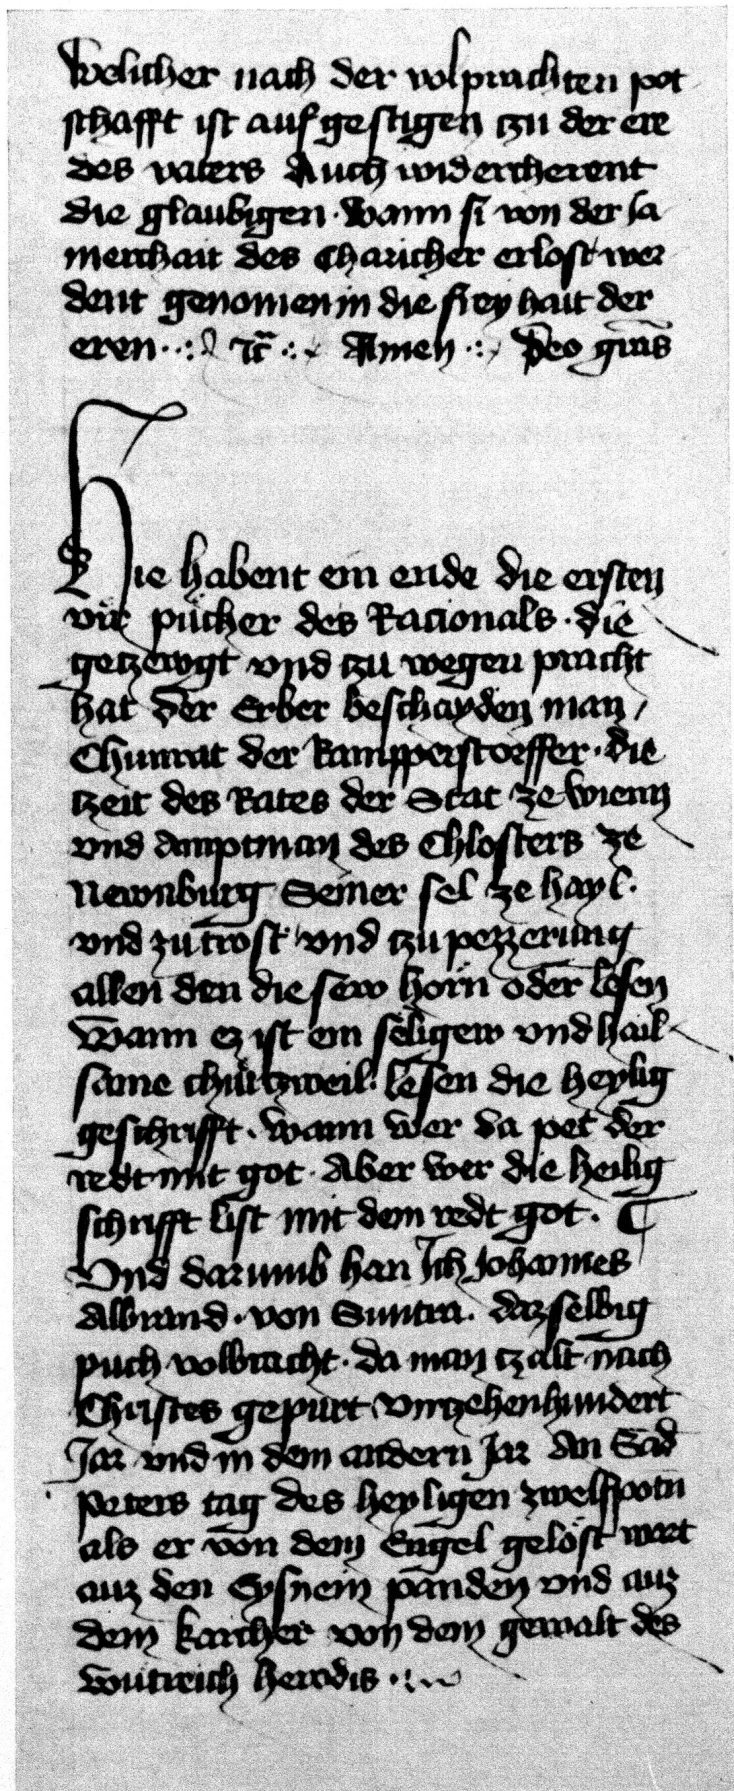 Welicher nach der volprachten pot
schafft ist auf gestigen tzu der ere
des vaters Auch widercherent
die glaubigen · Wann si von der sa
merchait des Charicher erlost wer
dent genomen in die freyhait der
eren · Amen · Deo gras
Hie habent ein ende die ersten
vir pücher des Racionals · die
getzewgt vnd tzu wegen pracht
hat der Erber beschayden man /
Chunrat der Rampperstorffer · die
tzeit des Rates der Stat ze wienn
vnd amptman des Chlosters ze
Newnburg Seiner sel ze hayl ·
vnd zu trost vnd tzu pezzerung
allen den die sew horn oder lesen
Wann ez ist ein seligew vnd hail
same churtzweil lesen die heylig
geschrifft · wann wer da pet der
redt mit got · Aber wer die heilig
schrifft list mit dem redt got ·
Vnd darumb han Ich Johannes
Albrand · von Suntra · dazselbig
puch volbracht · da man tzalt nach
Christes gepurt virtzehenhundert
Jar vnd in dem andern Jar An Sand
peters tag des heyligen zwelfpotn
als er von dem Engel gelöst wart
auz den Eysnein panden vnd auz
dem karcher von dem gewalt des
wutreich herodis ·